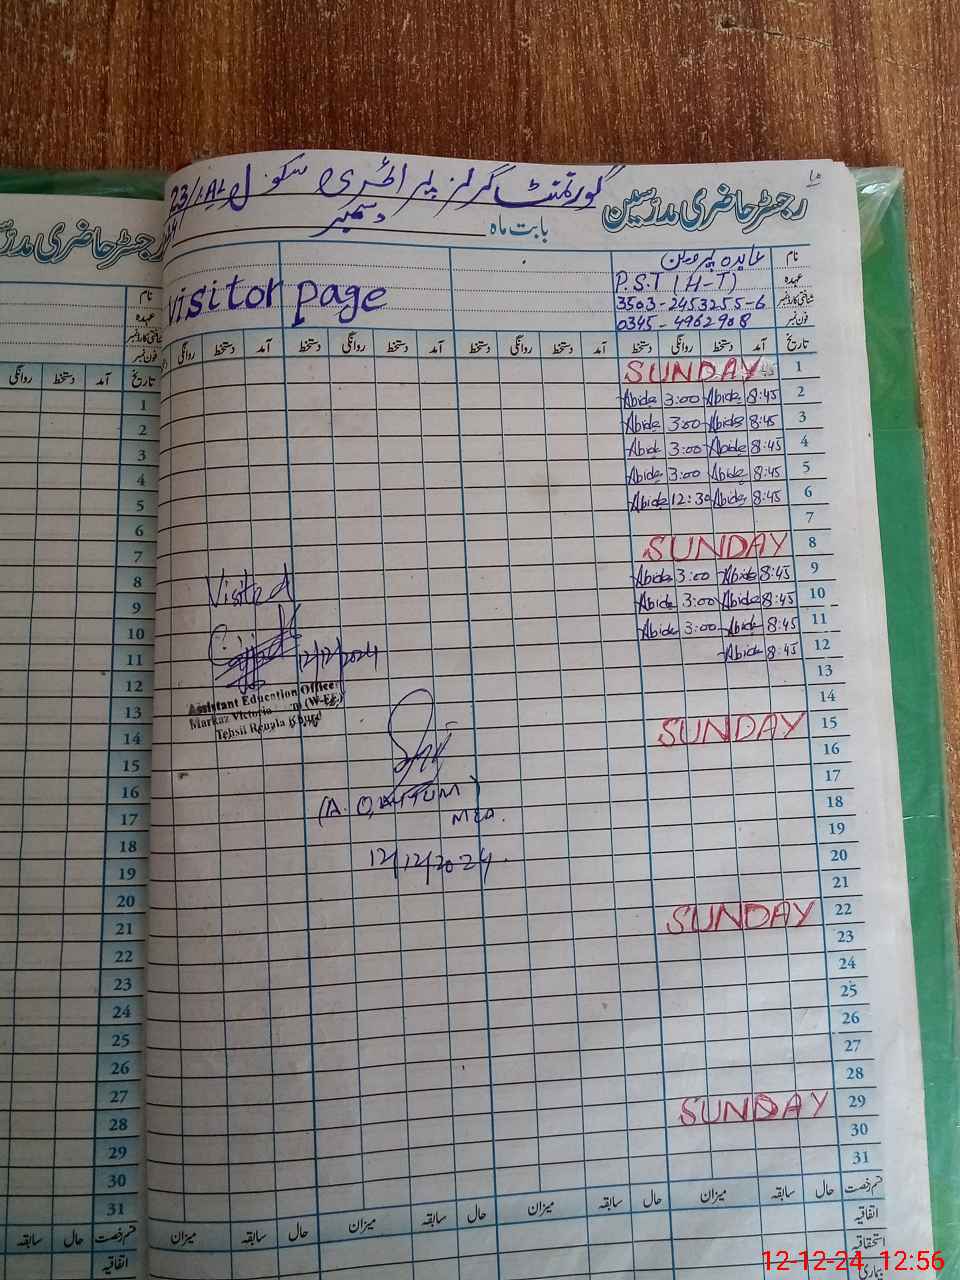 رجسٹر حاضری مدرسین
گورنمنٹ گرلز پرائمری سکول 23/1.AL
بابت ماہ دسمبر
نام عابدہ پروین
عہدہ P.S.T (H-T)
شناختی کارڈ نمبر 3503-2453255-6
فون نمبر 0345-4962908
visitor page
تاریخ آمد دستخط روانگی دستخط آمد دستخط روانگی دستخط آمد دستخط روانگی دستخط آمد دستخط روانگی
1 SUNDAY
2 8:45 Abida 3:00 Abida
3 8:45 Abida 3:00 Abida
4 8:45 Abida 3:00 Abida
5 8:45 Abida 3:00 Abida
6 8:45 Abida 12:30 Abida
7
8 SUNDAY
9 8:45 Abida 3:00 Abida
10 8:45 Abida 3:00 Abida
11 8:45 Abida 3:00 Abida
12 8:45 Abida
13
14
15 SUNDAY
16
17
18
19
20
21
22 SUNDAY
23
24
25
26
27
28
29 SUNDAY
30
31
Visited
12/12/2024
Assistant Education Officer
Markaz Victoria (W-EE)
Tehsil Renala Khurd
(A. QAYYUM)
MEA.
12/12/2024.
قسم رخصت حال سابقہ میزان حال سابقہ میزان حال سابقہ میزان حال سابقہ میزان
اتفاقیہ
استحقاقیہ
بیماری
رجسٹر حاضری مدرسین
نام
عہدہ
شناختی کارڈ نمبر
فون نمبر
تاریخ آمد دستخط روانگی
1
2
3
4
5
6
7
8
9
10
11
12
13
14
15
16
17
18
19
20
21
22
23
24
25
26
27
28
29
30
31
قسم رخصت حال سابقہ
اتفاقیہ
12-12-24, 12:56